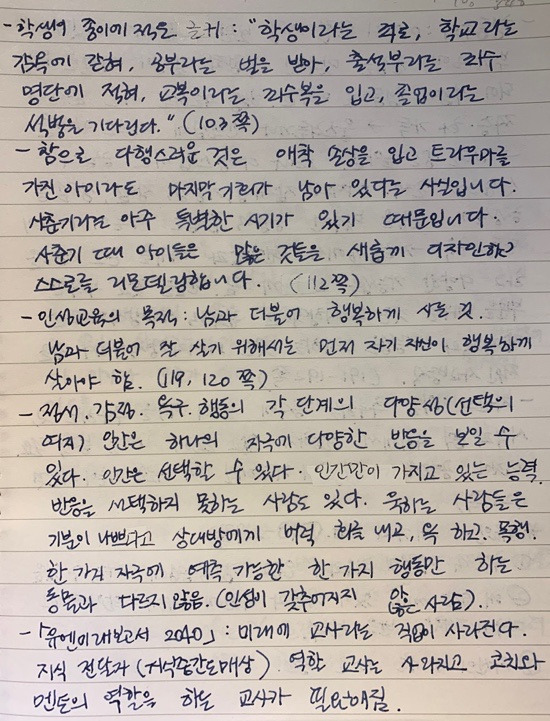 - 학생이 종이에 적은 글귀 : "학생이라는 죄로, 학교라는
감옥에 갇혀, 공부라는 벌을 받아, 출석부라는 죄수
명단에 적혀, 교복이라는 죄수복을 입고, 졸업이라는
석방을 기다린다." (103쪽)
- 참으로 다행스러운 것은 애착 손상을 입고 트라우마를
가진 아이라도 마지막 기회가 남아 있다는 사실입니다.
사춘기라는 아주 특별한 시기가 있기 때문입니다.
사춘기 때 아이들은 많은 것들을 새롭게 디자인하고
스스로를 리모델링합니다. (112쪽)
- 인성교육의 목적 : 남과 더불어 행복하게 사는 것.
남과 더불어 잘 살기 위해서는 먼저 자기 자신이 행복하게
살아야 함. (119, 120쪽)
- 정서. 감정. 욕구. 행동의 각 단계의 다양성(선택의
여지) 인간은 하나의 자극에 다양한 반응을 보일 수
있다. 인간은 선택할 수 있다. 인간만이 가지고 있는 능력.
반응을 선택하지 못하는 사람도 있다. 욱하는 사람들은
기분이 나쁘다고 상대방에게 버럭 화를 내고, 욕 하고. 폭행.
한 가지 자극에 예측 가능한 한 가지 행동만 하는
동물과 다르지 않음. (인성이 갖추어지지 않은 사람).
- 「유엔미래보고서 2040」 : 미래에 교사라는 직업이 사라진다.
지식 전달자 (지식중간도매상) 역할 교사는 사라지고 코치와
멘토의 역할을 하는 교사가 필요해짐.